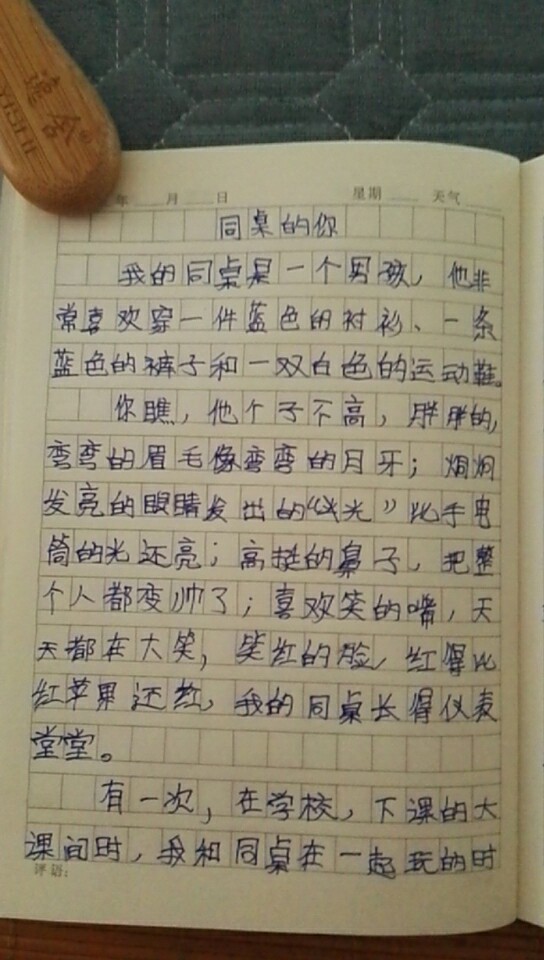 德合
年 月 日 星期 天气
同桌的你
我的同桌是一个男孩，他非
常喜欢穿一件蓝色的衬衫、一条
蓝色的裤子和一双白色的运动鞋。
你瞧，他个子不高，胖胖的，
弯弯的眉毛像弯弯的月牙；炯炯
发亮的眼睛发出的“光”比手电
筒的光还亮；高挺的鼻子，把整
个人都变帅了；喜欢笑的嘴，天
天都在大笑，笑红的脸，红得比
红苹果还红，我的同桌长得仪表
堂堂。
有一次，在学校，下课的大
课间时，我和同桌在一起玩的时
评语：